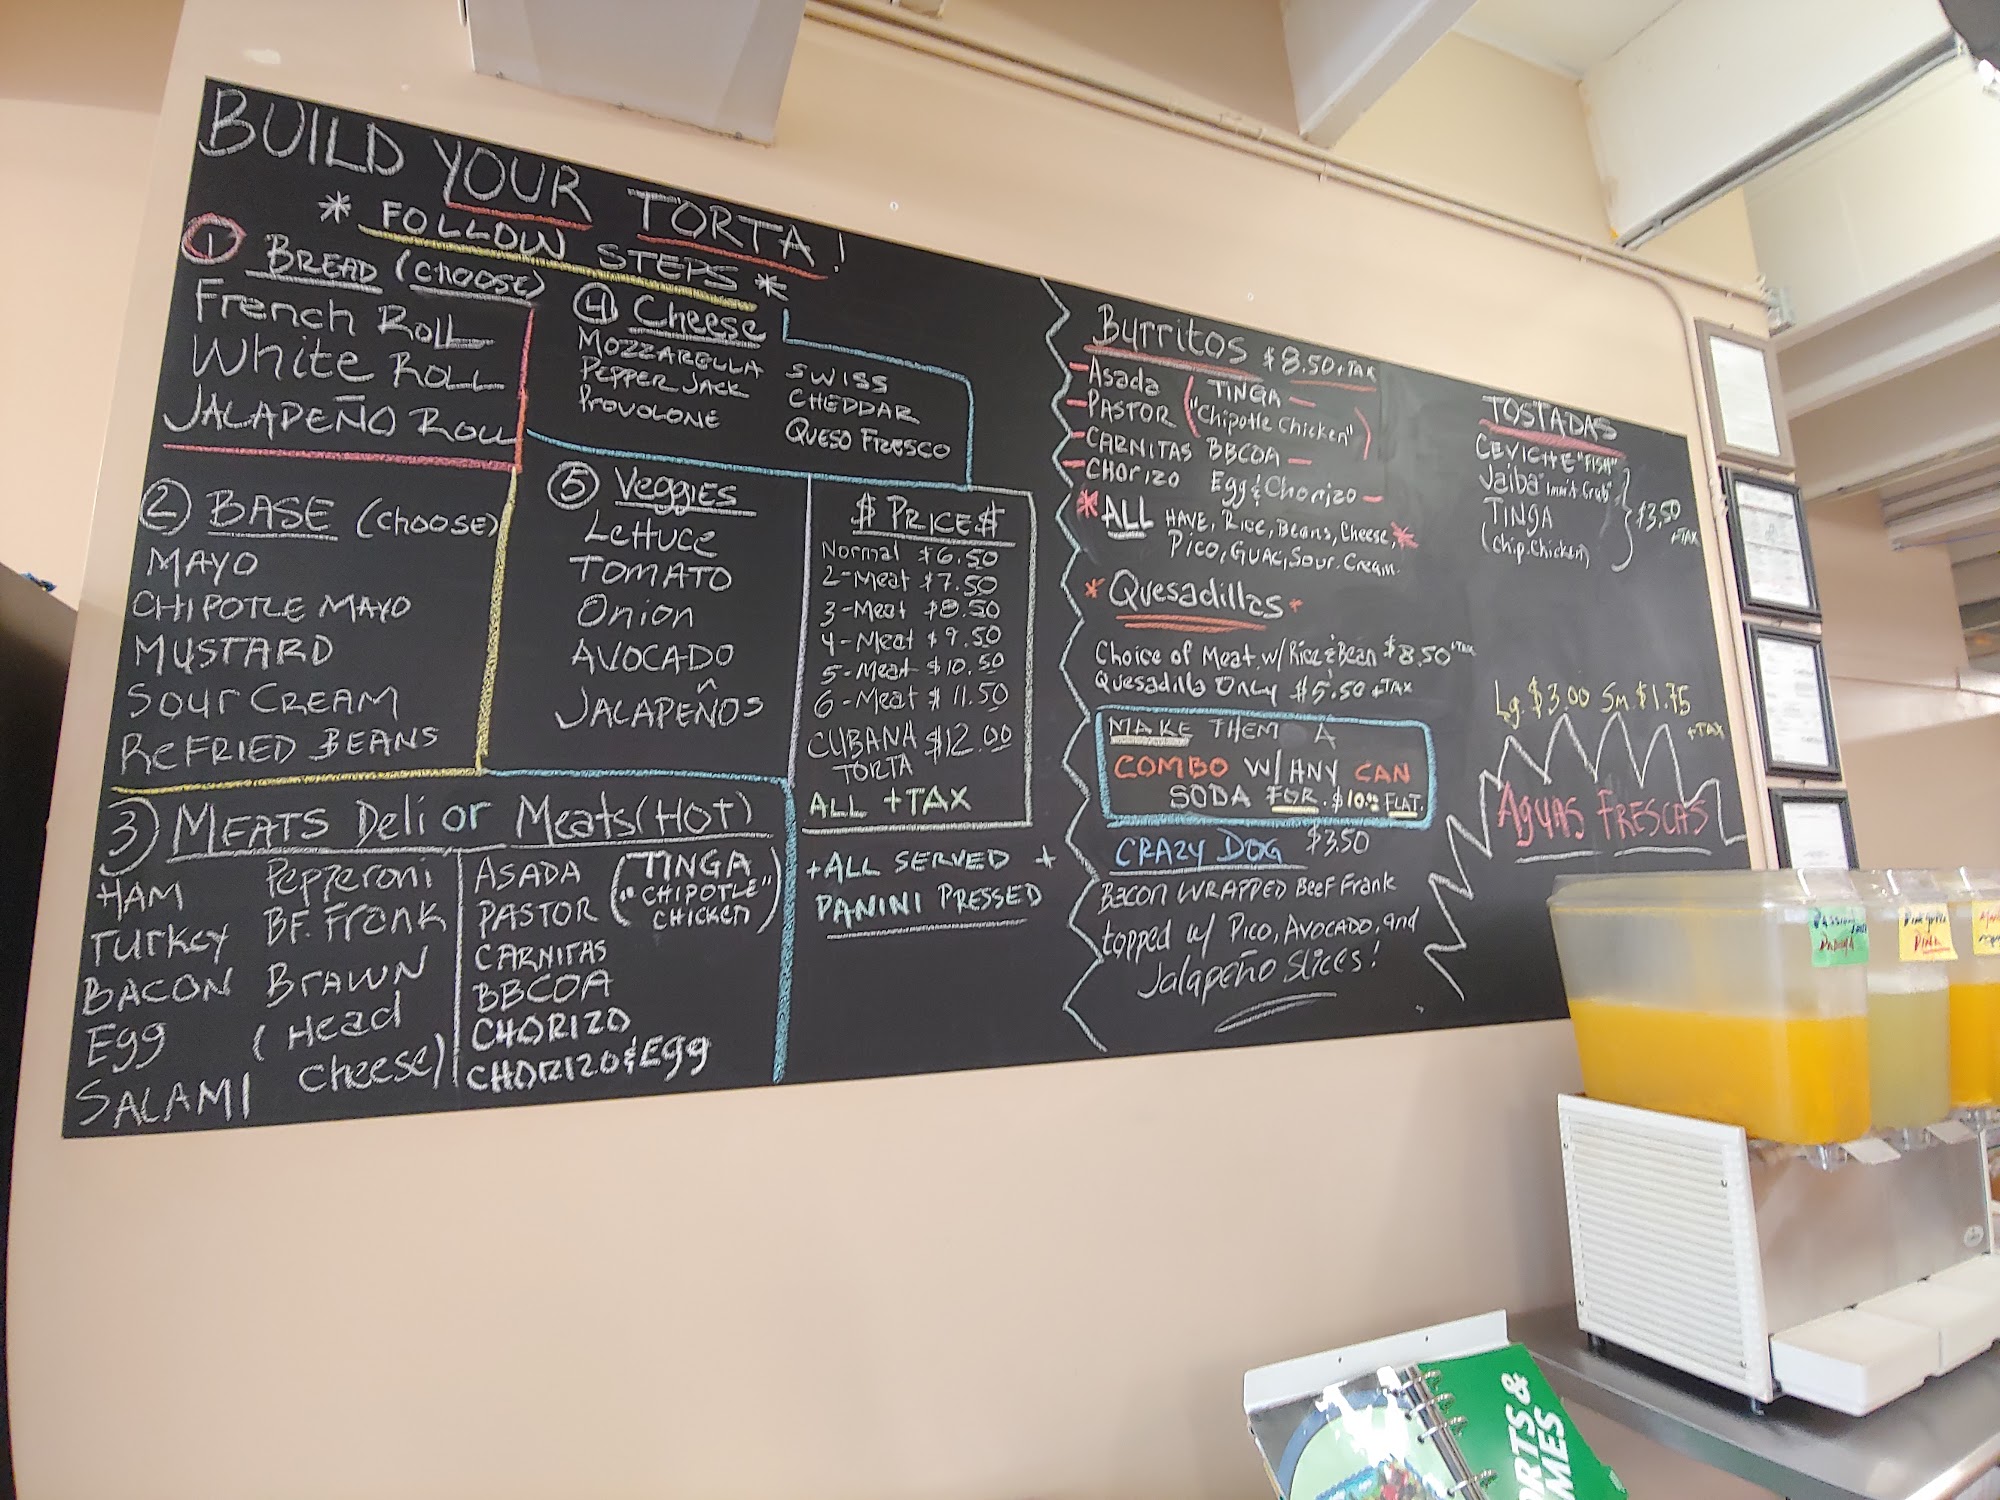 BUILD YOUR TORTA!
* FOLLOW STEPS *
1 BREAD (CHOOSE)
French ROLL
White ROLL
JALAPEÑO ROLL
2 BASE (CHOOSE)
MAYO
CHIPOTLE MAYO
MUSTARD
SOUR CREAM
REFRIED BEANS
3 MEATS Deli or Meats (HOT)
HAM
TURKEY
BACON
Egg
SALAMI
Pepperoni
BF. Frank
BRAWN
(Head
cheese)
ASADA
PASTOR
CARNITAS
BBCOA
CHORIZO
CHORIZO & Egg
(TINGA
"CHIPOTLE"
CHICKEN)
4 Cheese
MOZZARELLA
PEPPER JACK
PROVOLONE
SWISS
CHEDDAR
QUESO FRESCO
5 Veggies
Lettuce
TOMATO
Onion
AVOCADO
JALAPEÑOS
$ PRICE $
Normal $6.50
2-Meat $7.50
3-Meat $8.50
4-Meat $9.50
5-Meat $10.50
6-Meat $11.50
CUBANA $12.00
TORTA
ALL + TAX
+ ALL SERVED +
PANINI PRESSED
Burritos $8.50 + TAX
- Asada
- PASTOR
- CARNITAS
- CHORIZO
TINGA -
("Chipotle Chicken")
BBCOA -
Egg & Chorizo -
* ALL HAVE, Rice, Beans, Cheese, *
Pico, GUAC, Sour. Cream.
* Quesadillas *
Choice of Meat w/ Rice & Bean $8.50 + TAX
Quesadilla ONLY $5.50 + TAX
MAKE THEM A
COMBO W/ ANY CAN
SODA FOR $10.00 FLAT.
CRAZY DOG $3.50
Bacon WRAPPED Beef Frank
topped w/ PICO, AVOCADO, and
Jalapeño Slices!
TOSTADAS
CEVICHE "FISH"
Jaiba "Imit. Crab"
TINGA
(Chip. Chicken)
$3.50
+ TAX
Lg. $3.00 Sm $1.75
+ TAX
AGUAS FRESCAS
PINK